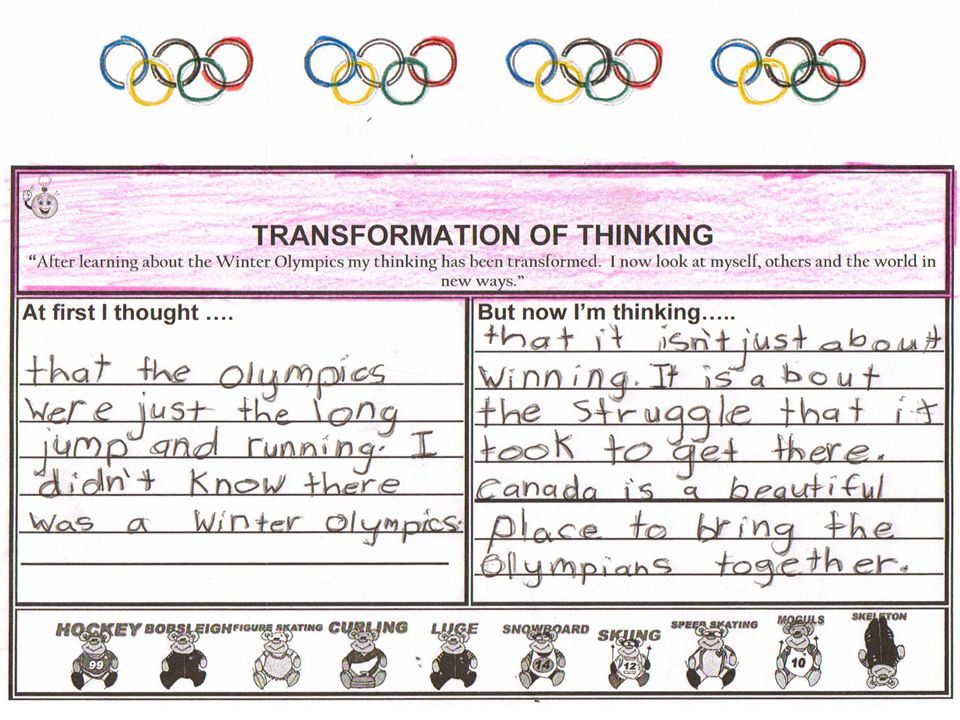 TRANSFORMATION OF THINKING
“After learning about the Winter Olympics my thinking has been transformed. I now look at myself, others and the world in
new ways.”
At first I thought ….
that the olympics
were just the long
jump and running. I
didn't know there
was a winter olympics.
But now I’m thinking…..
that it isn't just about
winning. It is about
the struggle that it
took to get there.
Canada is a beautiful
place to bring the
Olympians together.
HOCKEY BOBSLEIGH FIGURE SKATING CURLING LUGE SNOWBOARD SKIING SPEED SKATING MOGULS SKELETON
99 14 12 10